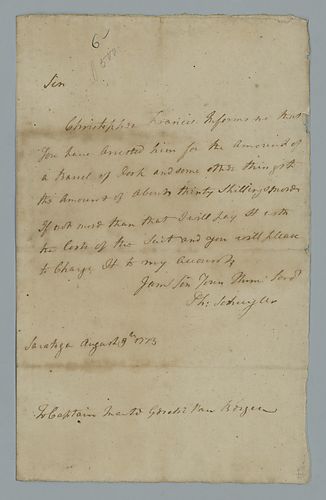 6
Sir
Christopher Francis Informs me that
You have Arrested him for the Amount of
a Barrel of Pork and some other things to
the Amount of About thirty Shillings more
If not more than that I will pay It with
the Costs of the Suit and you will please
to Charge It to my Account
I am Sir Your Hum: Serv:t
Ph: Schuyler
Saratoga August 9th 1773
To Captain Van Bergen